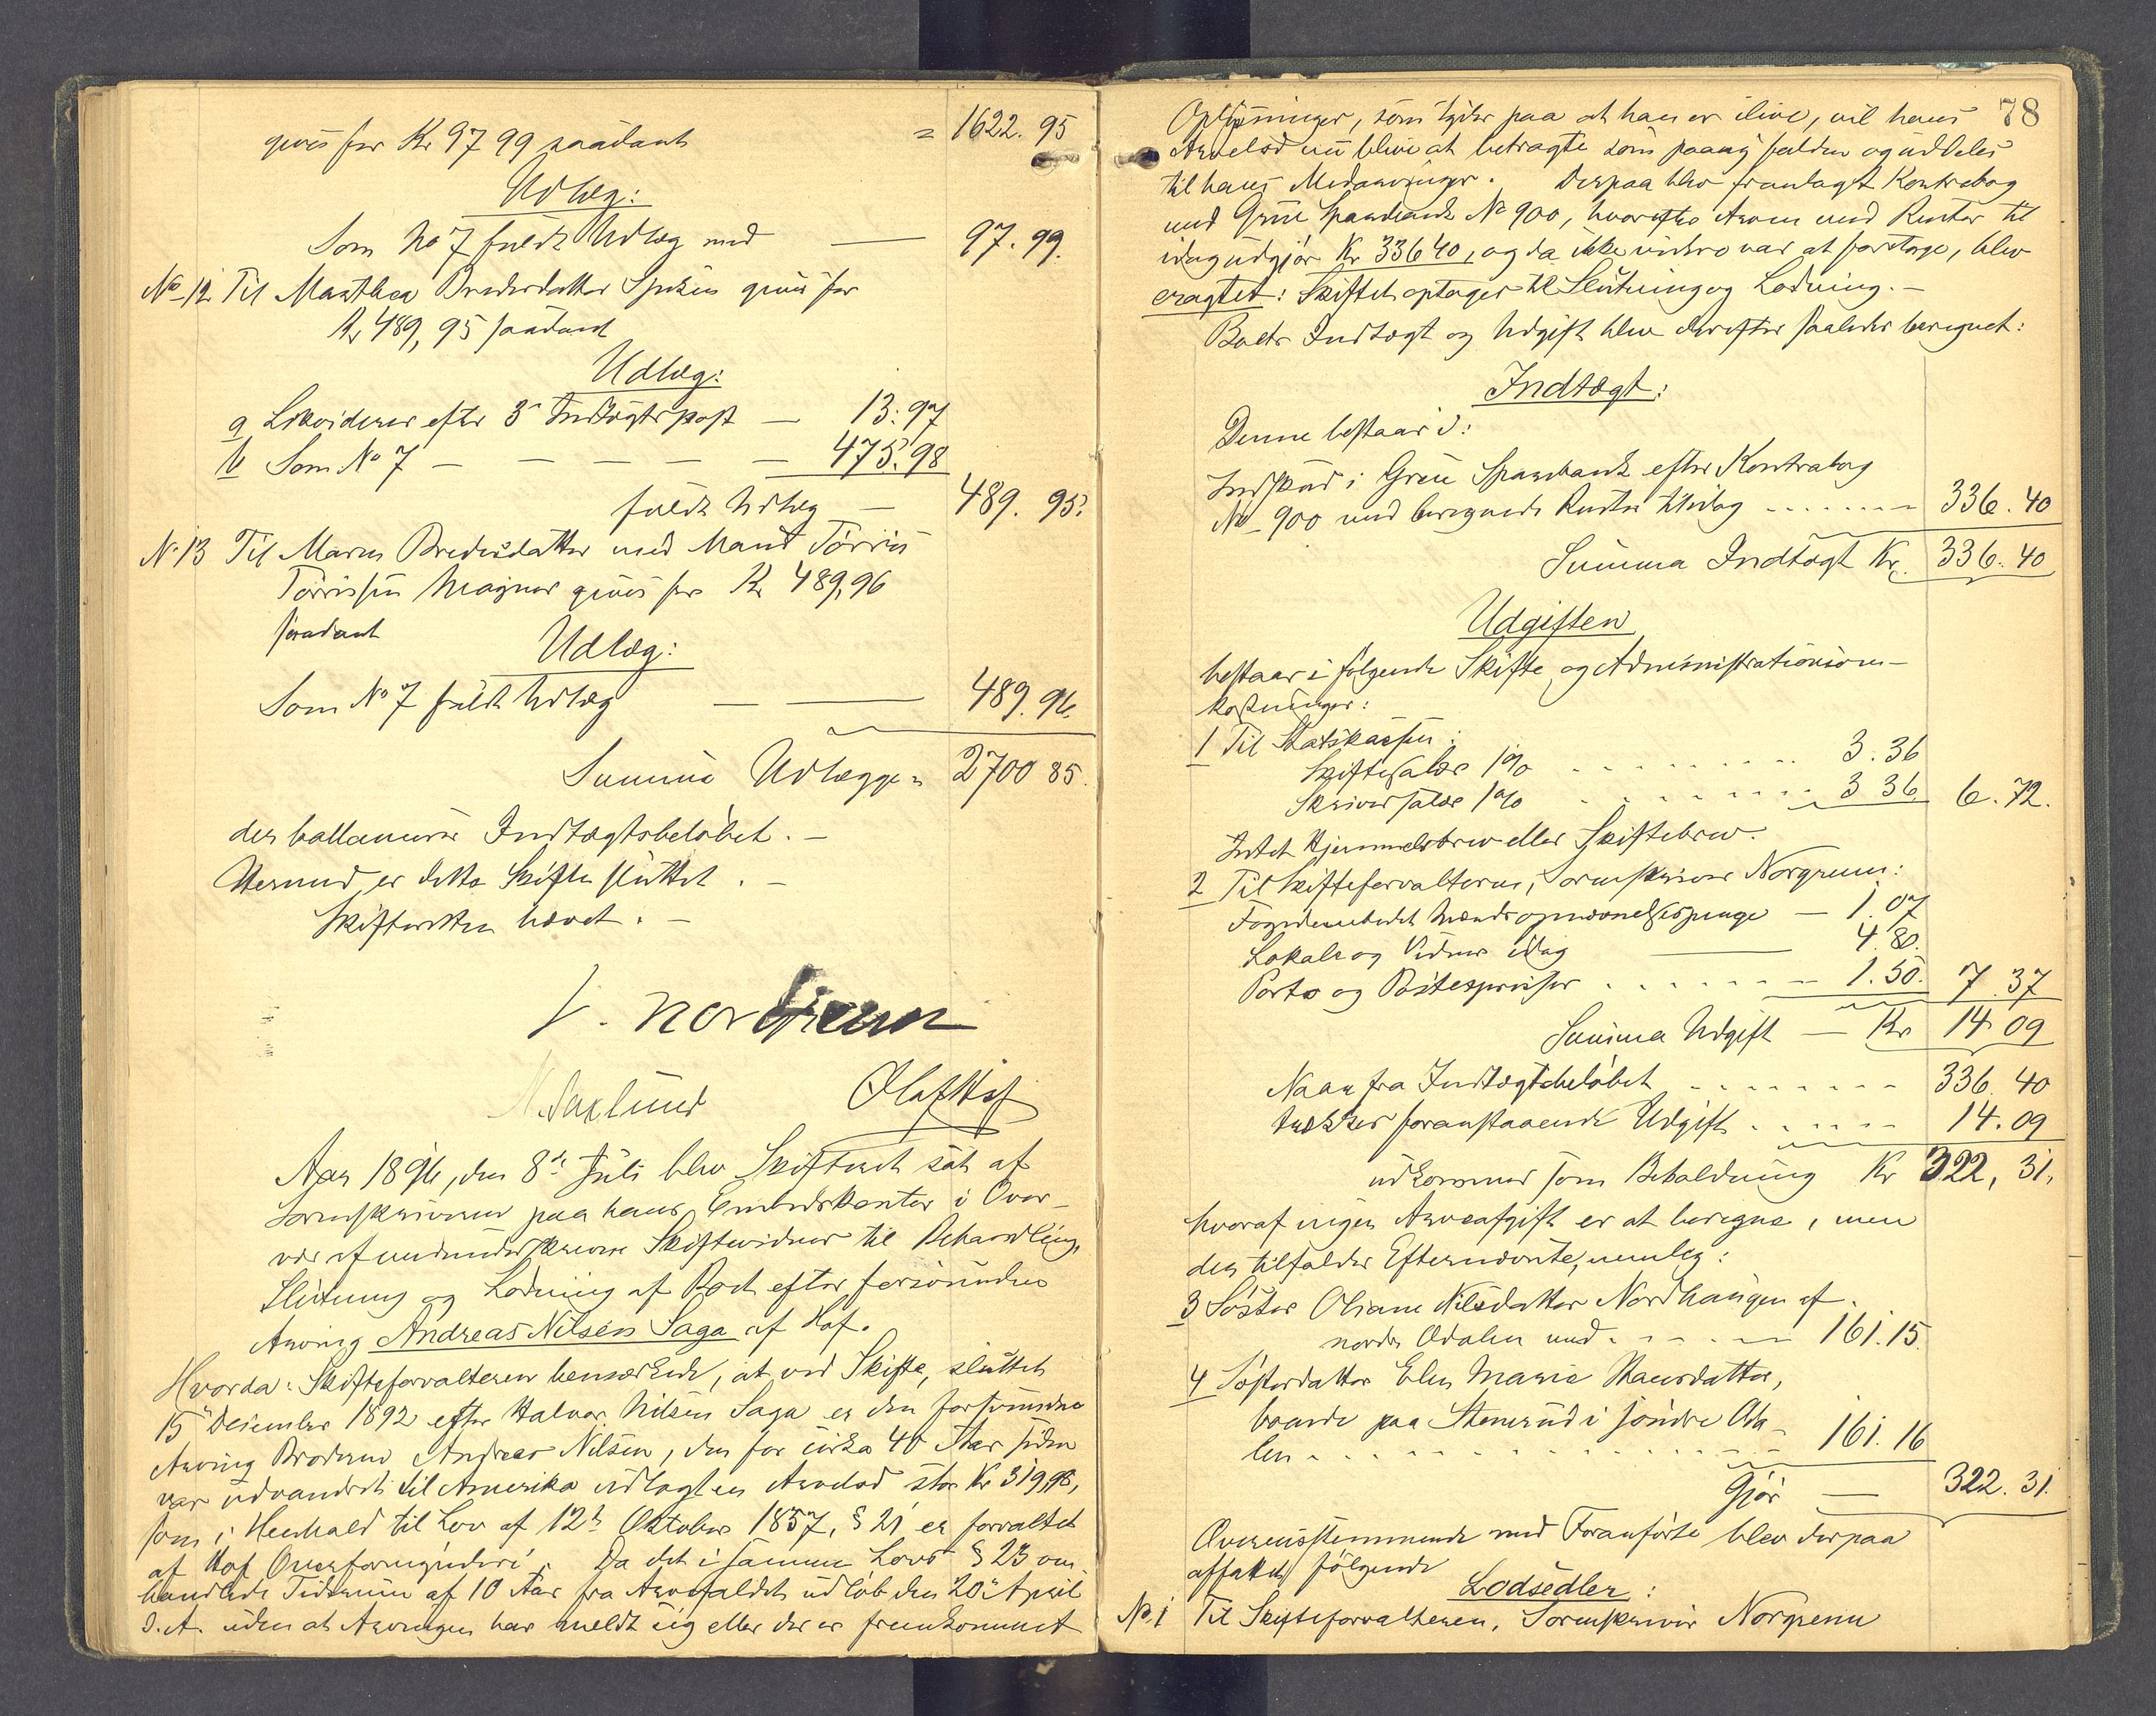 gives for Kr 97 99 saadant = 1622. 95
Udlæg:
Som No 7 fuldt Udlæg med — 97. 99.
No 12 Til Marthea Bredesdatter gives for
Kr 489,95 saadant
Udlæg:
a Likviderer efter 3 Indtægtspost — 13. 97
b Som No 7 — — — — — 475. 98
fuldt Udlæg — 489. 95.
No 13 Til Maren Bredesdatter med Mand Törris
Törrissen Magnor gives for Kr 489,96
saadant
Udlæg:
Som No 7 fuldt Udlæg — — 489. 96.
Summa Udlæggen 2700 85.
der ballancerer Indtægtsbelöbet. —
Hermed er dette Skifte sluttet. —
Skifteretten hævet. —
Norgrenn
N. Saxlund Olaf Hof
Aar 1896, den 8de Juli blev Skifteret sat af
Sorenskriveren paa hans Embedskontor i Over-
vær af medunderskrevne Skiftevidner til Behandling,
Slutning og Lodning af Boet efter forsvundne
Arving Andreas Nilsen Saga af Hof.
Hvorda: Skifteforvalteren bemærkede, at ved Skifte, sluttet
15 December 1892 efter Halvor Nilsen Saga er den forsvundne
Arving Broderen Andreas Nilsen, der for cirka 40 Aar siden
var udvandret til Amerika udlagt en Arvelod stor Kr 319,98,
som i Henhold til Lov af 12te Oktober 1857, § 21 er forvaltet
af Hof Overformynderi. Da det i samme Lovs § 23 om-
handlede Tidsrum af 10 Aar fra Arvefaldet udlöb den 20 April
d. A. uden at Arvingen har meldt sig eller der er fremkommet
78
Oplysninger, som tyder paa at han er ilive, vil hans
Arvelod nu blive at betragte som paany falden og uddeles
til hans Medarvinger. Derpaa blev fremlagt Kontrabog
med Grue Sparebank No 900, hvorefter Arven med Renter til
idag udgjör Kr 336 40, og da ikke videre var at foretage, blev
eragtet: Skiftet optages til Slutning og Lodning. —
Boets Indtægt og Udgift blev derefter saaledes beregnet:
Indtægt:
Denne bestaar i:
Indskud i Grue Sparebank efter Kontrabog
No 900 med beregnede Renter til idag 336. 40
Summa Indtægt Kr. 336. 40
Udgiften
bestaar i fölgende Skifte og Administrationsom-
kostninger:
1 Til Statskassen:
Skiftesalær 1% 3. 36
Skriversalær 1% 3 36 6. 72.
Intet Hjemmelsbrev eller Skiftebrev.
2 Til Skifteforvalteren, Sorenskriver Norgrenn:
Fogdembedet Mændsopnævnelsespenge — 1. 07
Lokale og Vidner idag — 4. 80.
Porto og Postexpresser 1. 50. 7. 37
Summa Udgift — Kr 14 09
Naar fra Indtægtsbelöbet 336. 40
trækkes foranstaaende Udgift 14. 09
udkommer som Beholdning Kr 322, 31,
hvoraf ingen Arveafgift er at beregne, men
der tilfalder Efternævnte, nemlig:
3 Söster Oliane Nilsdatter Nordhaugen af
nordre Odalen med 161. 15.
4 Sösterdatter Elen Marie Hansdatter,
boende paa Stenerud i söndre Oda-
len 161. 16
Gjör — 322. 31.
Overensstemmende med Foranförte blev derpaa
affattet fölgende
Lodsedler:
No 1 Til Skifteforvalteren, Sorenskriver Norgrenn